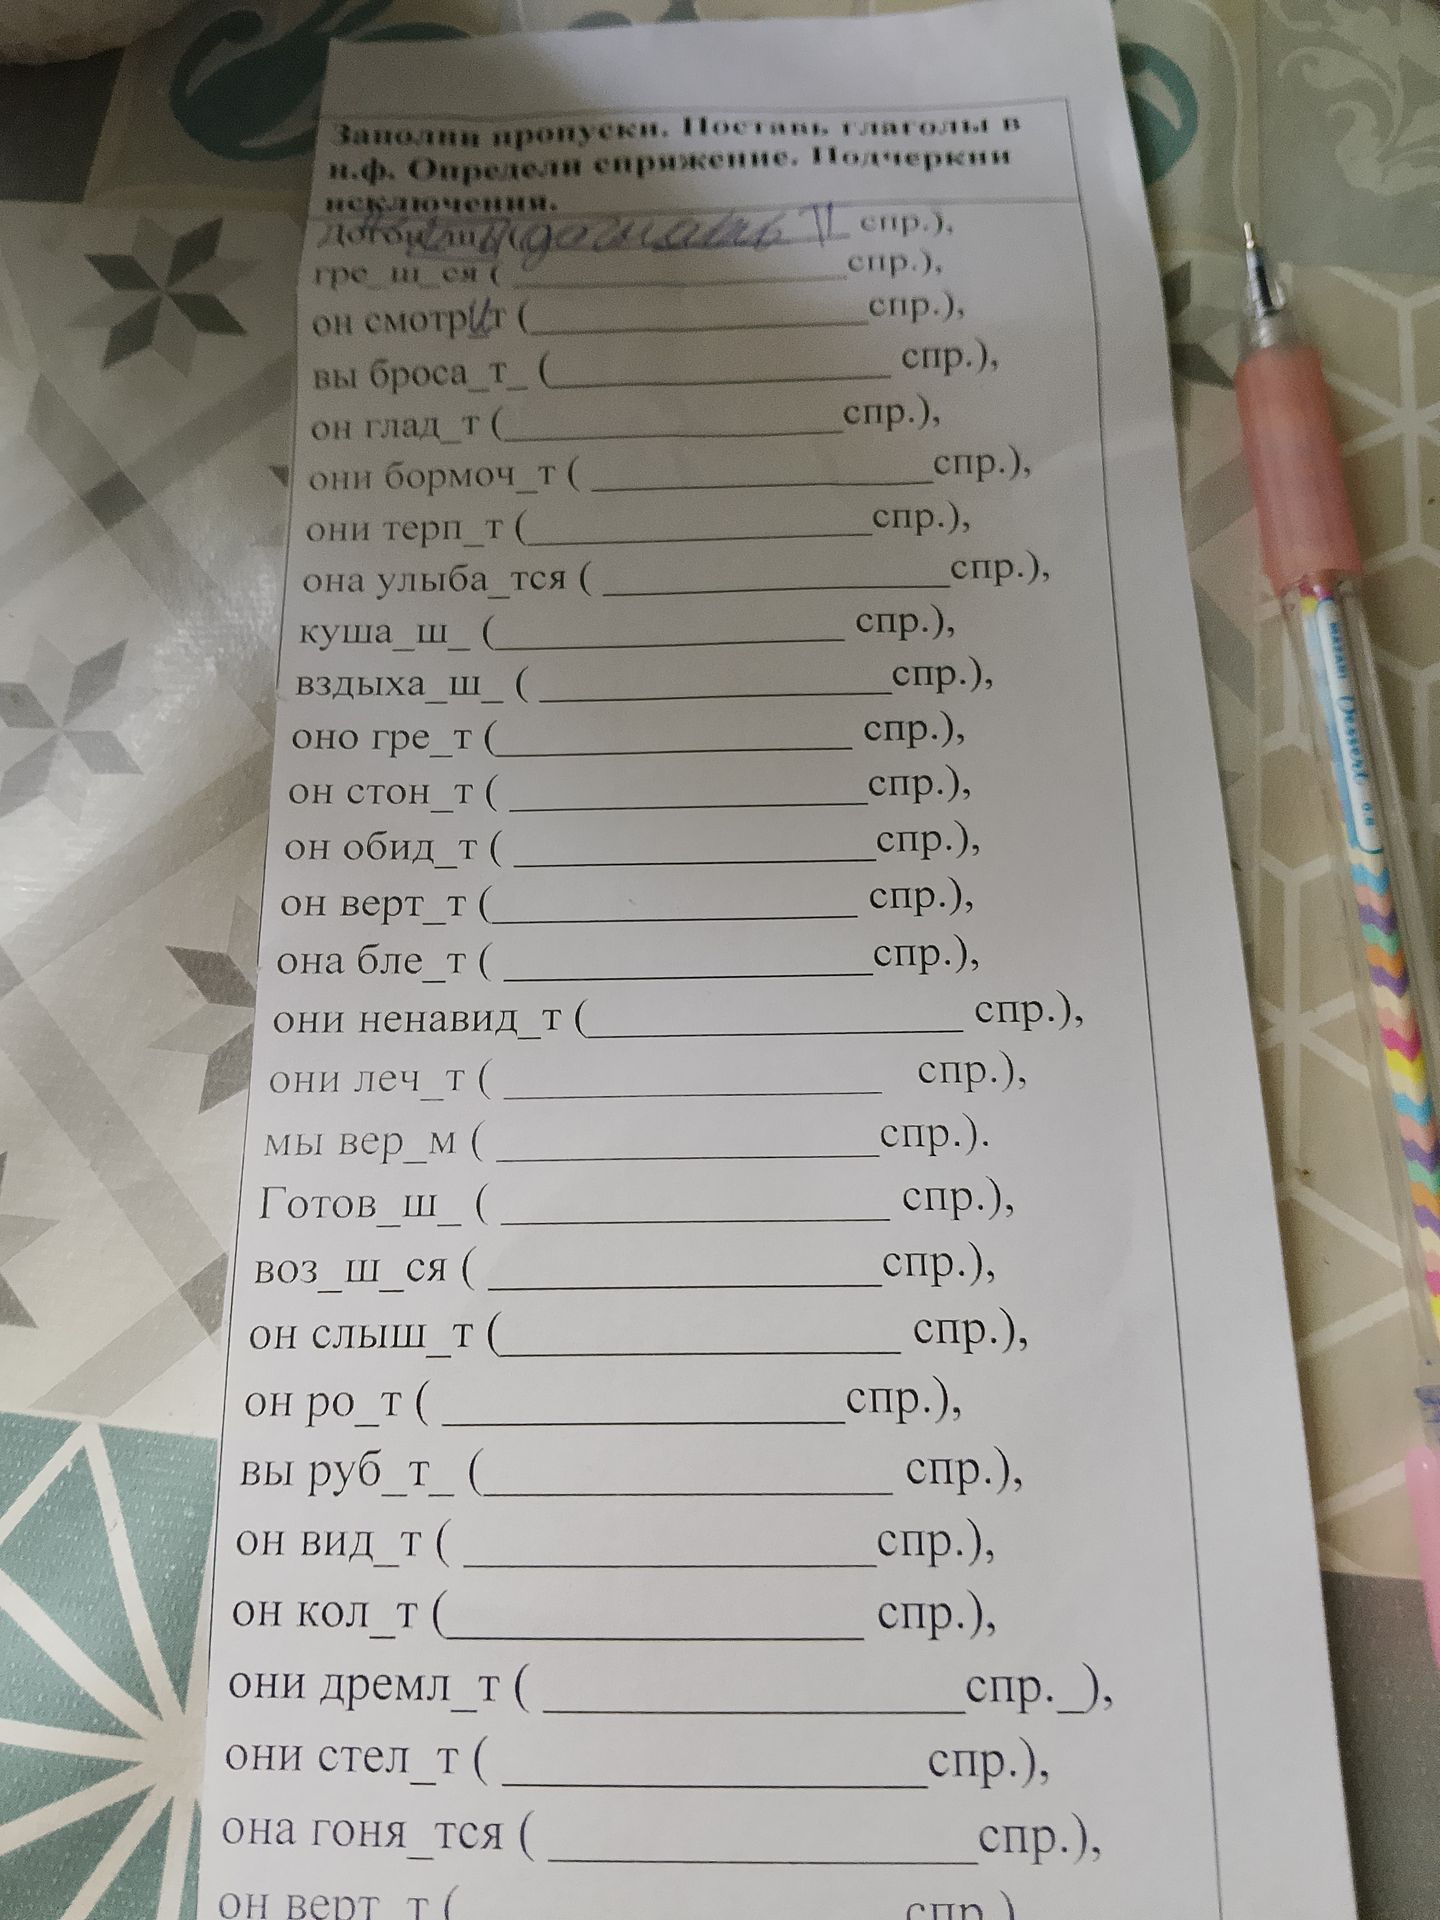 Заполни пропуски. Поставь глаголы в
н.ф. Определи спряжение. Подчеркни
исключения.
(догнать II спр.),
гре_ш_ся ( ________ спр.),
он смотрит (________ спр.),
вы броса_т_ (________ спр.),
он глад_т (________ спр.),
они бормоч_т ( ________ спр.),
они терп_т (________ спр.),
она улыба_тся ( ________ спр.),
куша_ш_ (________ спр.),
вздыха_ш_ ( ________ спр.),
оно гре_т (________ спр.),
он стон_т ( ________ спр.),
он обид_т ( ________ спр.),
он верт_т (________ спр.),
она бле_т ( ________ спр.),
они ненавид_т (________ спр.),
они леч_т ( ________ спр.),
мы вер_м ( ________ спр.).
Готов_ш_ ( ________ спр.),
воз_ш_ся ( ________ спр.),
он слыш_т (________ спр.),
он ро_т ( ________ спр.),
вы руб_т_ (________ спр.),
он вид_т ( ________ спр.),
он кол_т (________ спр.),
они дремл_т ( ________ спр._),
они стел_т ( ________ спр.),
она гоня_тся ( ________ спр.),
он верт_т ( ________ спр.)
Dessert 0.8